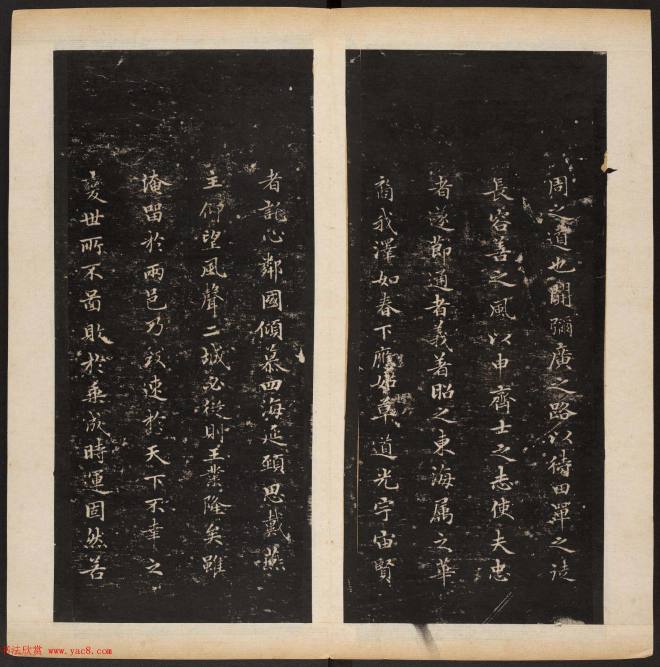 周之道也開彌廣之路以待田單之徒
長容善之風以申齊士之志使夫忠
者遂節通者義著昭之東海屬之華
裔我澤如春下應如草道光宇宙賢
者託心鄰國傾慕四海延頸思戴燕
主仰望風聲二城必從則王業隆矣雖
淹留於兩邑乃致速於天下不幸之
變世所不圖敗於垂成時運固然若
书法欣赏 www.yac8.com